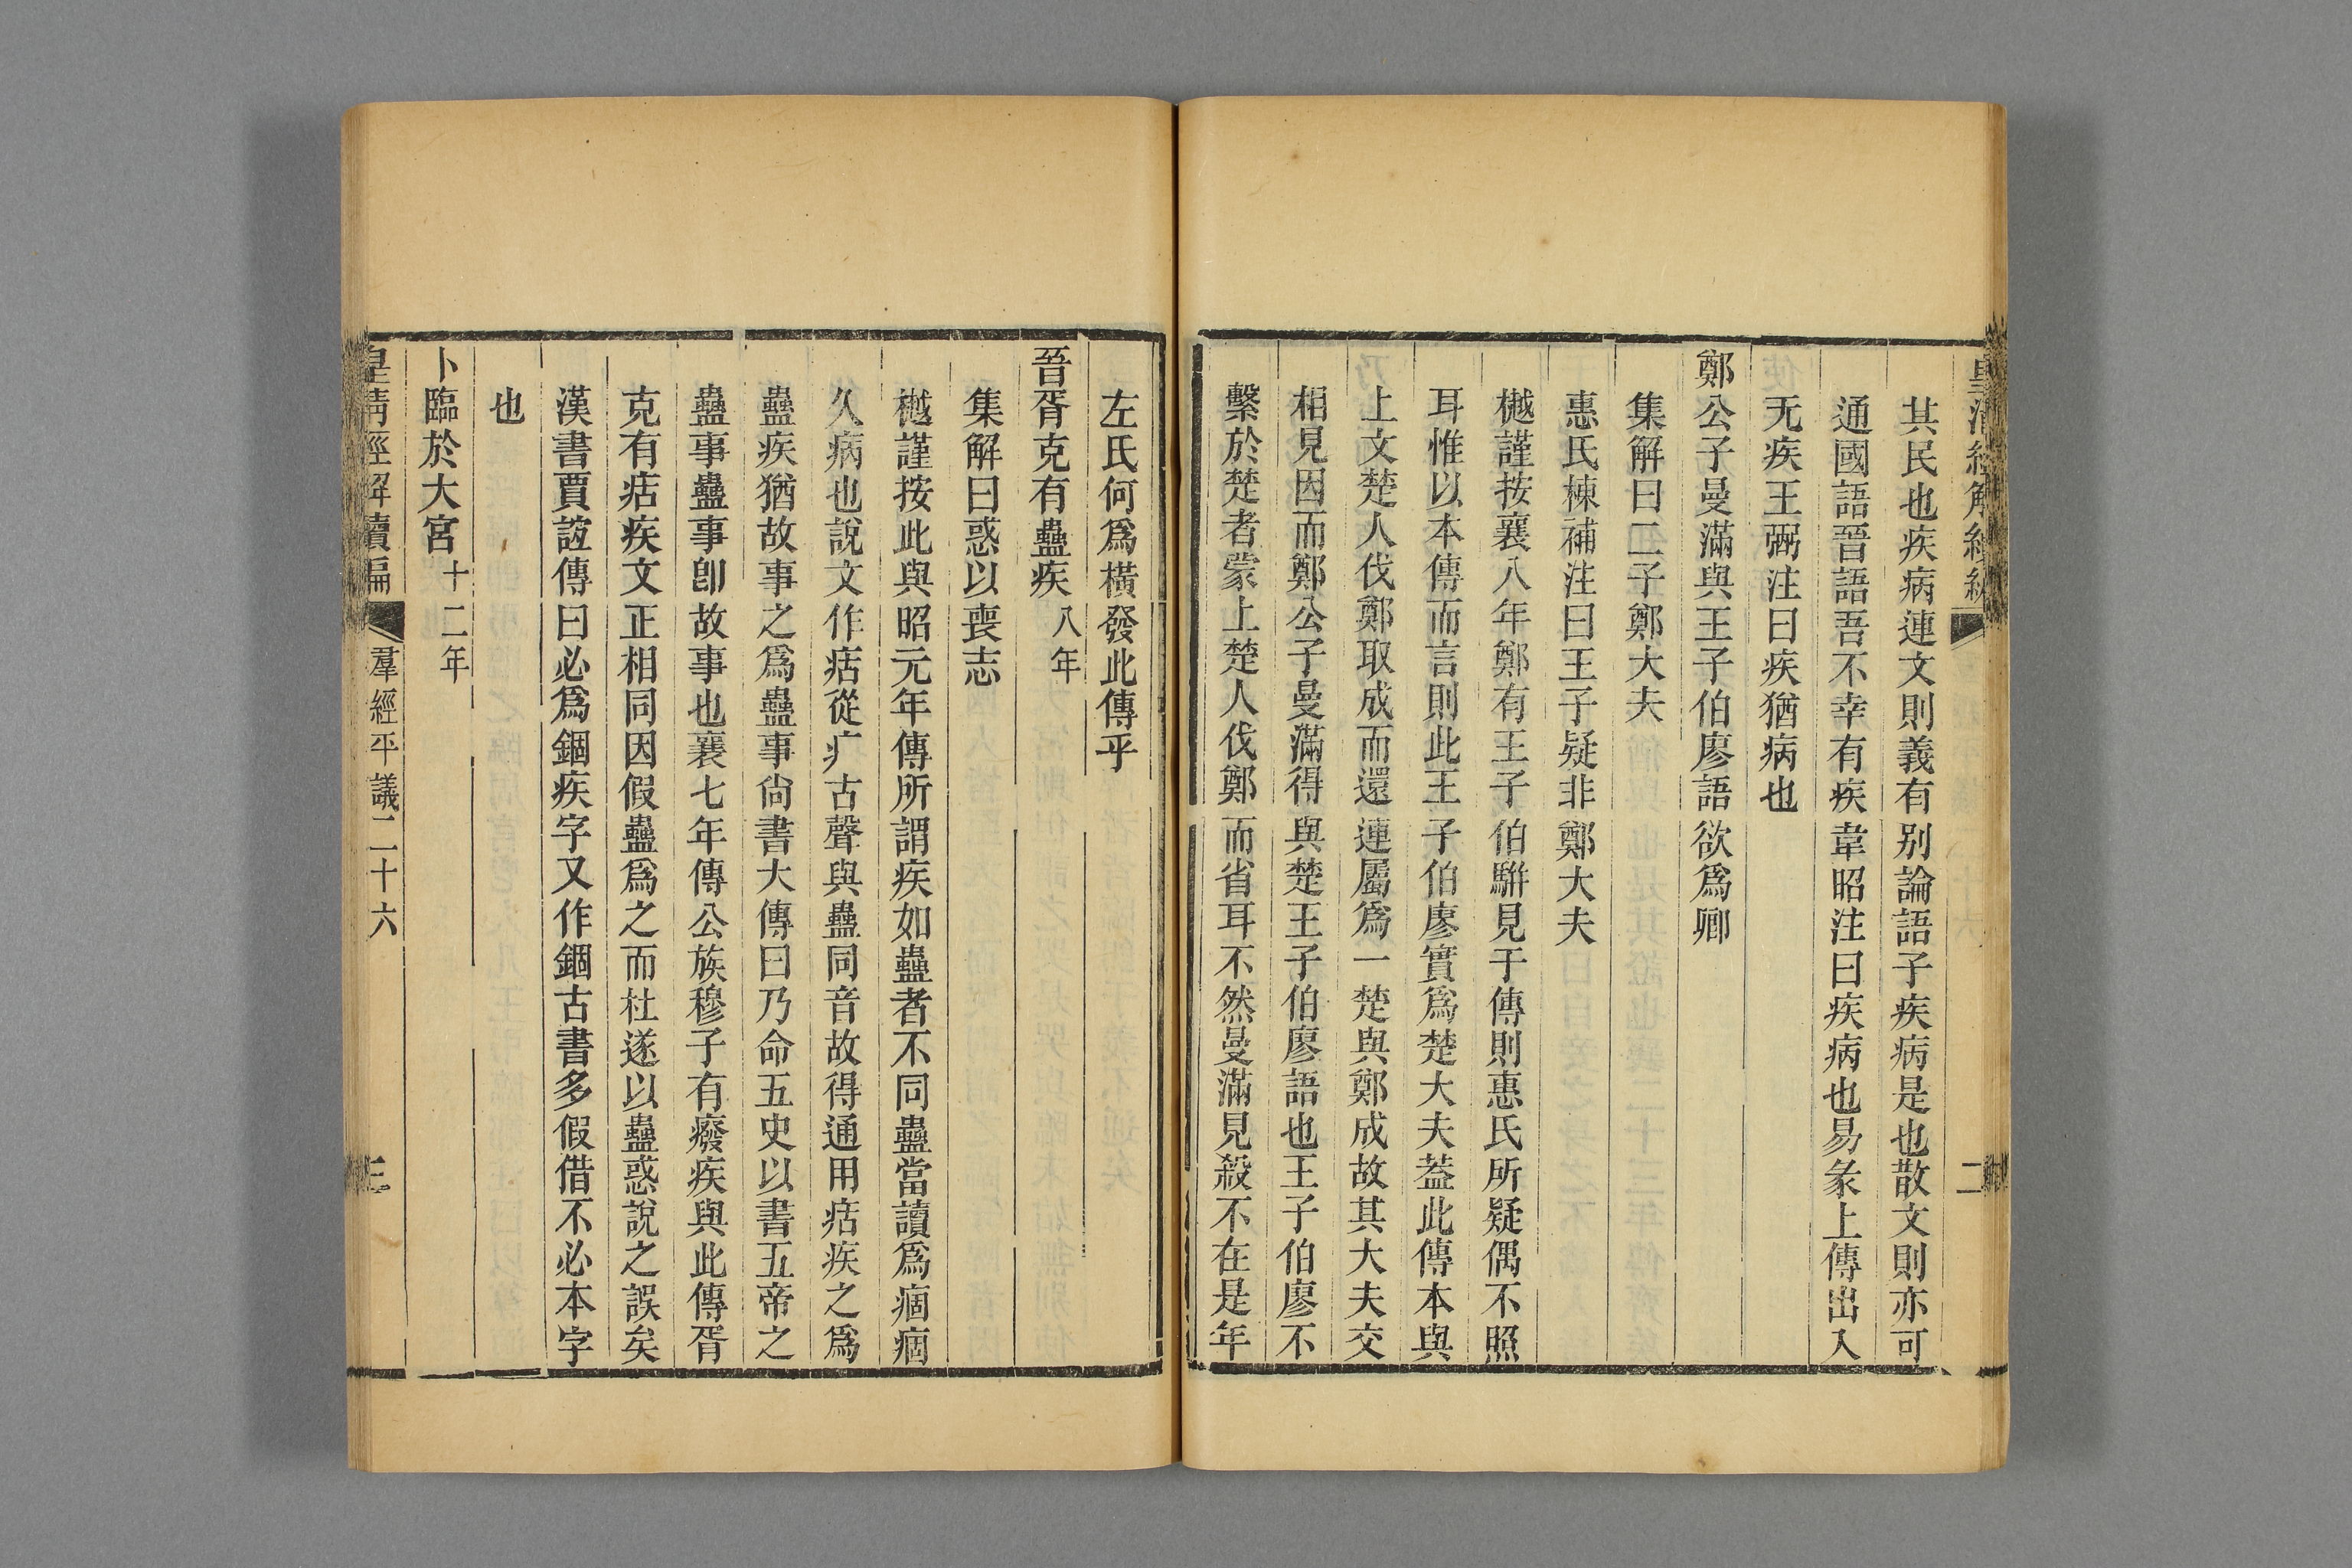 皇清經解續編
二
其民也疾病連文則義有別論語子疾病是也散文則亦可
通國語晉語吾不幸有疾韋昭注曰疾病也易彖上傳出入
无疾王弼注曰疾猶病也
鄭公子曼滿與王子伯廖語欲爲卿
集解曰二子鄭大夫
惠氏棟補注曰王子疑非鄭大夫
樾謹按襄八年鄭有王子伯駢見于傳則惠氏所疑偶不照
耳惟以本傳而言則此王子伯廖實爲楚大夫葢此傳本與
上文楚人伐鄭取成而還連屬爲一楚與鄭成故其大夫交
相見因而鄭公子曼滿得與楚王子伯廖語也王子伯廖不
繫於楚者蒙上楚人伐鄭而省耳不然曼滿見殺不在是年
左氏何爲橫發此傳乎
晉胥克有蠱疾八年
集解曰惑以喪志
樾謹按此與昭元年傳所謂疾如蠱者不同蠱當讀爲痼痼
久病也說文作㾇從疒古聲與蠱同音故得通用㾇疾之爲
蠱疾猶故事之爲蠱事尙書大傳曰乃命五史以書五帝之
蠱事蠱事卽故事也襄七年傳公族穆子有癈疾與此傳胥
克有㾇疾文正相同因假蠱爲之而杜遂以蠱惑說之誤矣
漢書賈誼傳曰必爲錮疾字又作錮古書多假借不必本字
也
卜臨於大宮十二年
皇清經解續編
羣經平議二十六
三